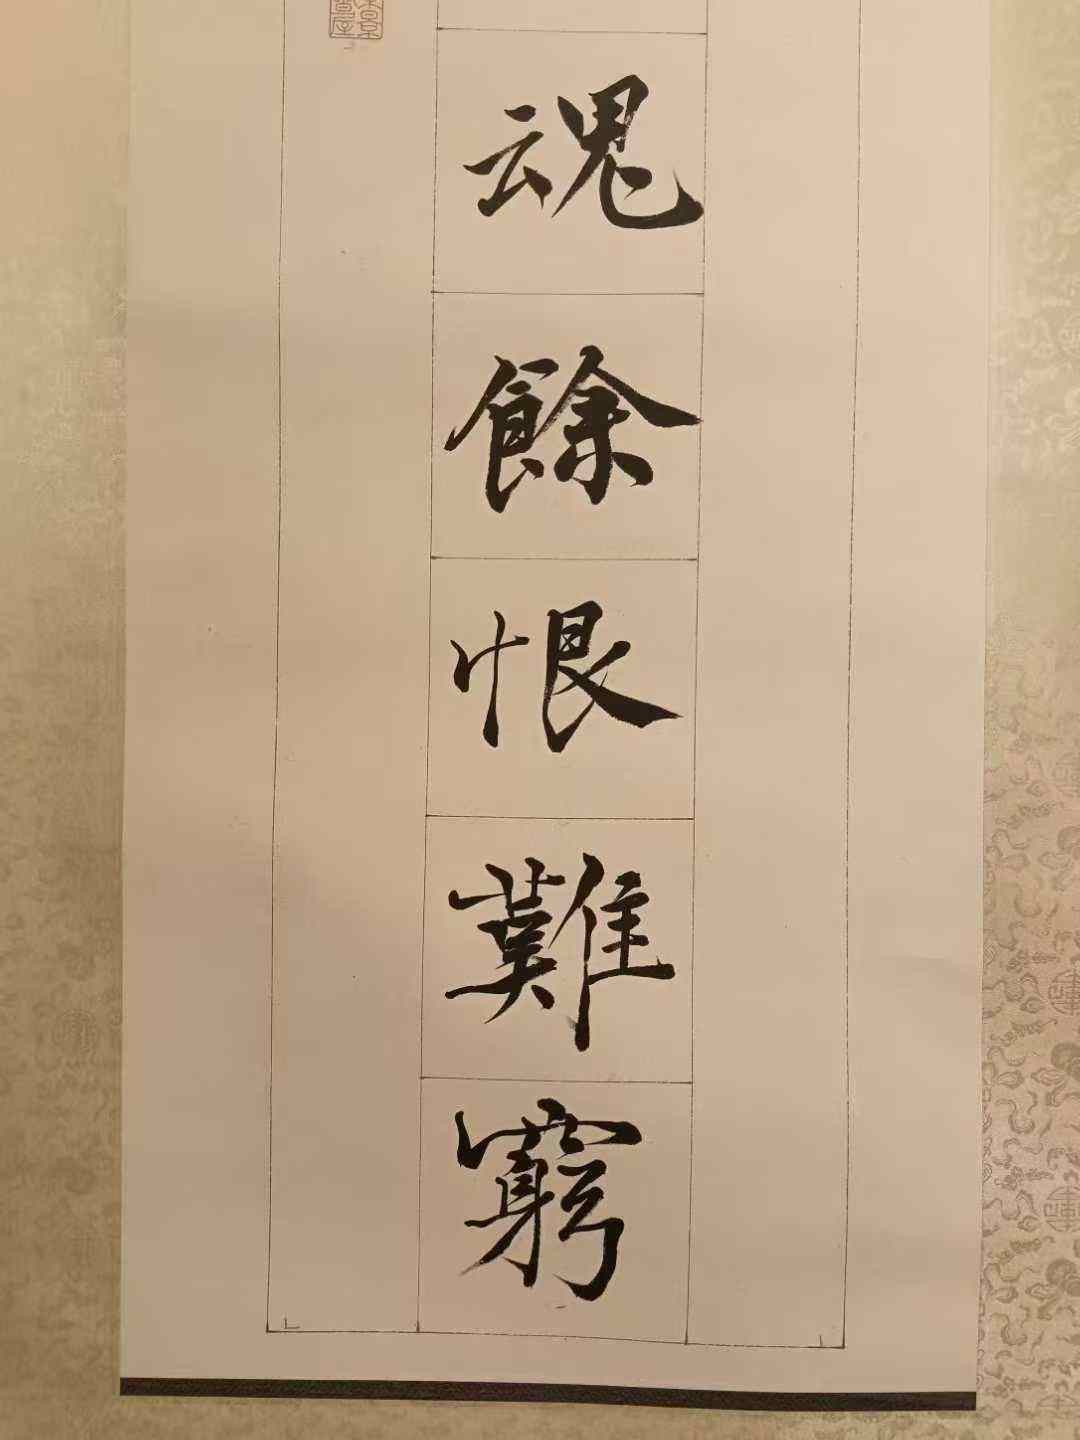 魂餘恨難窮